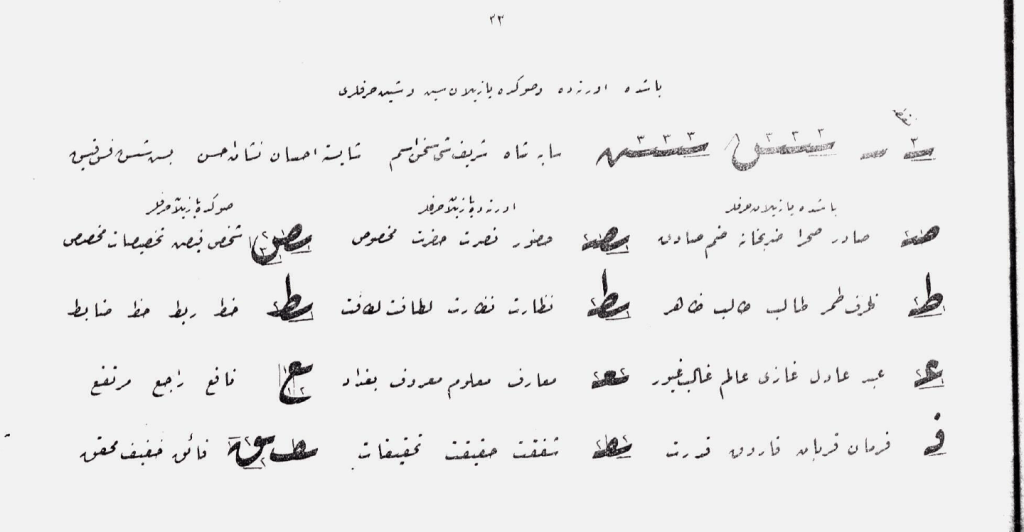 ٢٣
باشده اورتده وصوكره يازيلان سين وشين حرفلرى
نقطه
٣ ٣ ٣ ٣ ٣ ٣ ٣ سايه شاه شريف شى سخن اسم شايسته احسان نشان حسن بس شمس فس قيس
باشده يازيلان حرفلر اورتده يازيلان حرفلر صوكره يازيلان حرفلر
صادر صحرا ضبخانه ضم صادق حضور نصرت حضرت مخصوص ص شخص قبض تخصيصات مخصص
ط ظرف طمر طالب ظاهر ط نظارت لطافت ط خط ربط حظ ضابط
عبد عادل غازى عالم غالب غيور معارف معلوم معروف بغداد ع نافع راجع مرتفع
ف فرمان قربان فاروق قدرت شفقت حقيقت تحقيقات فائق خفيف محقق